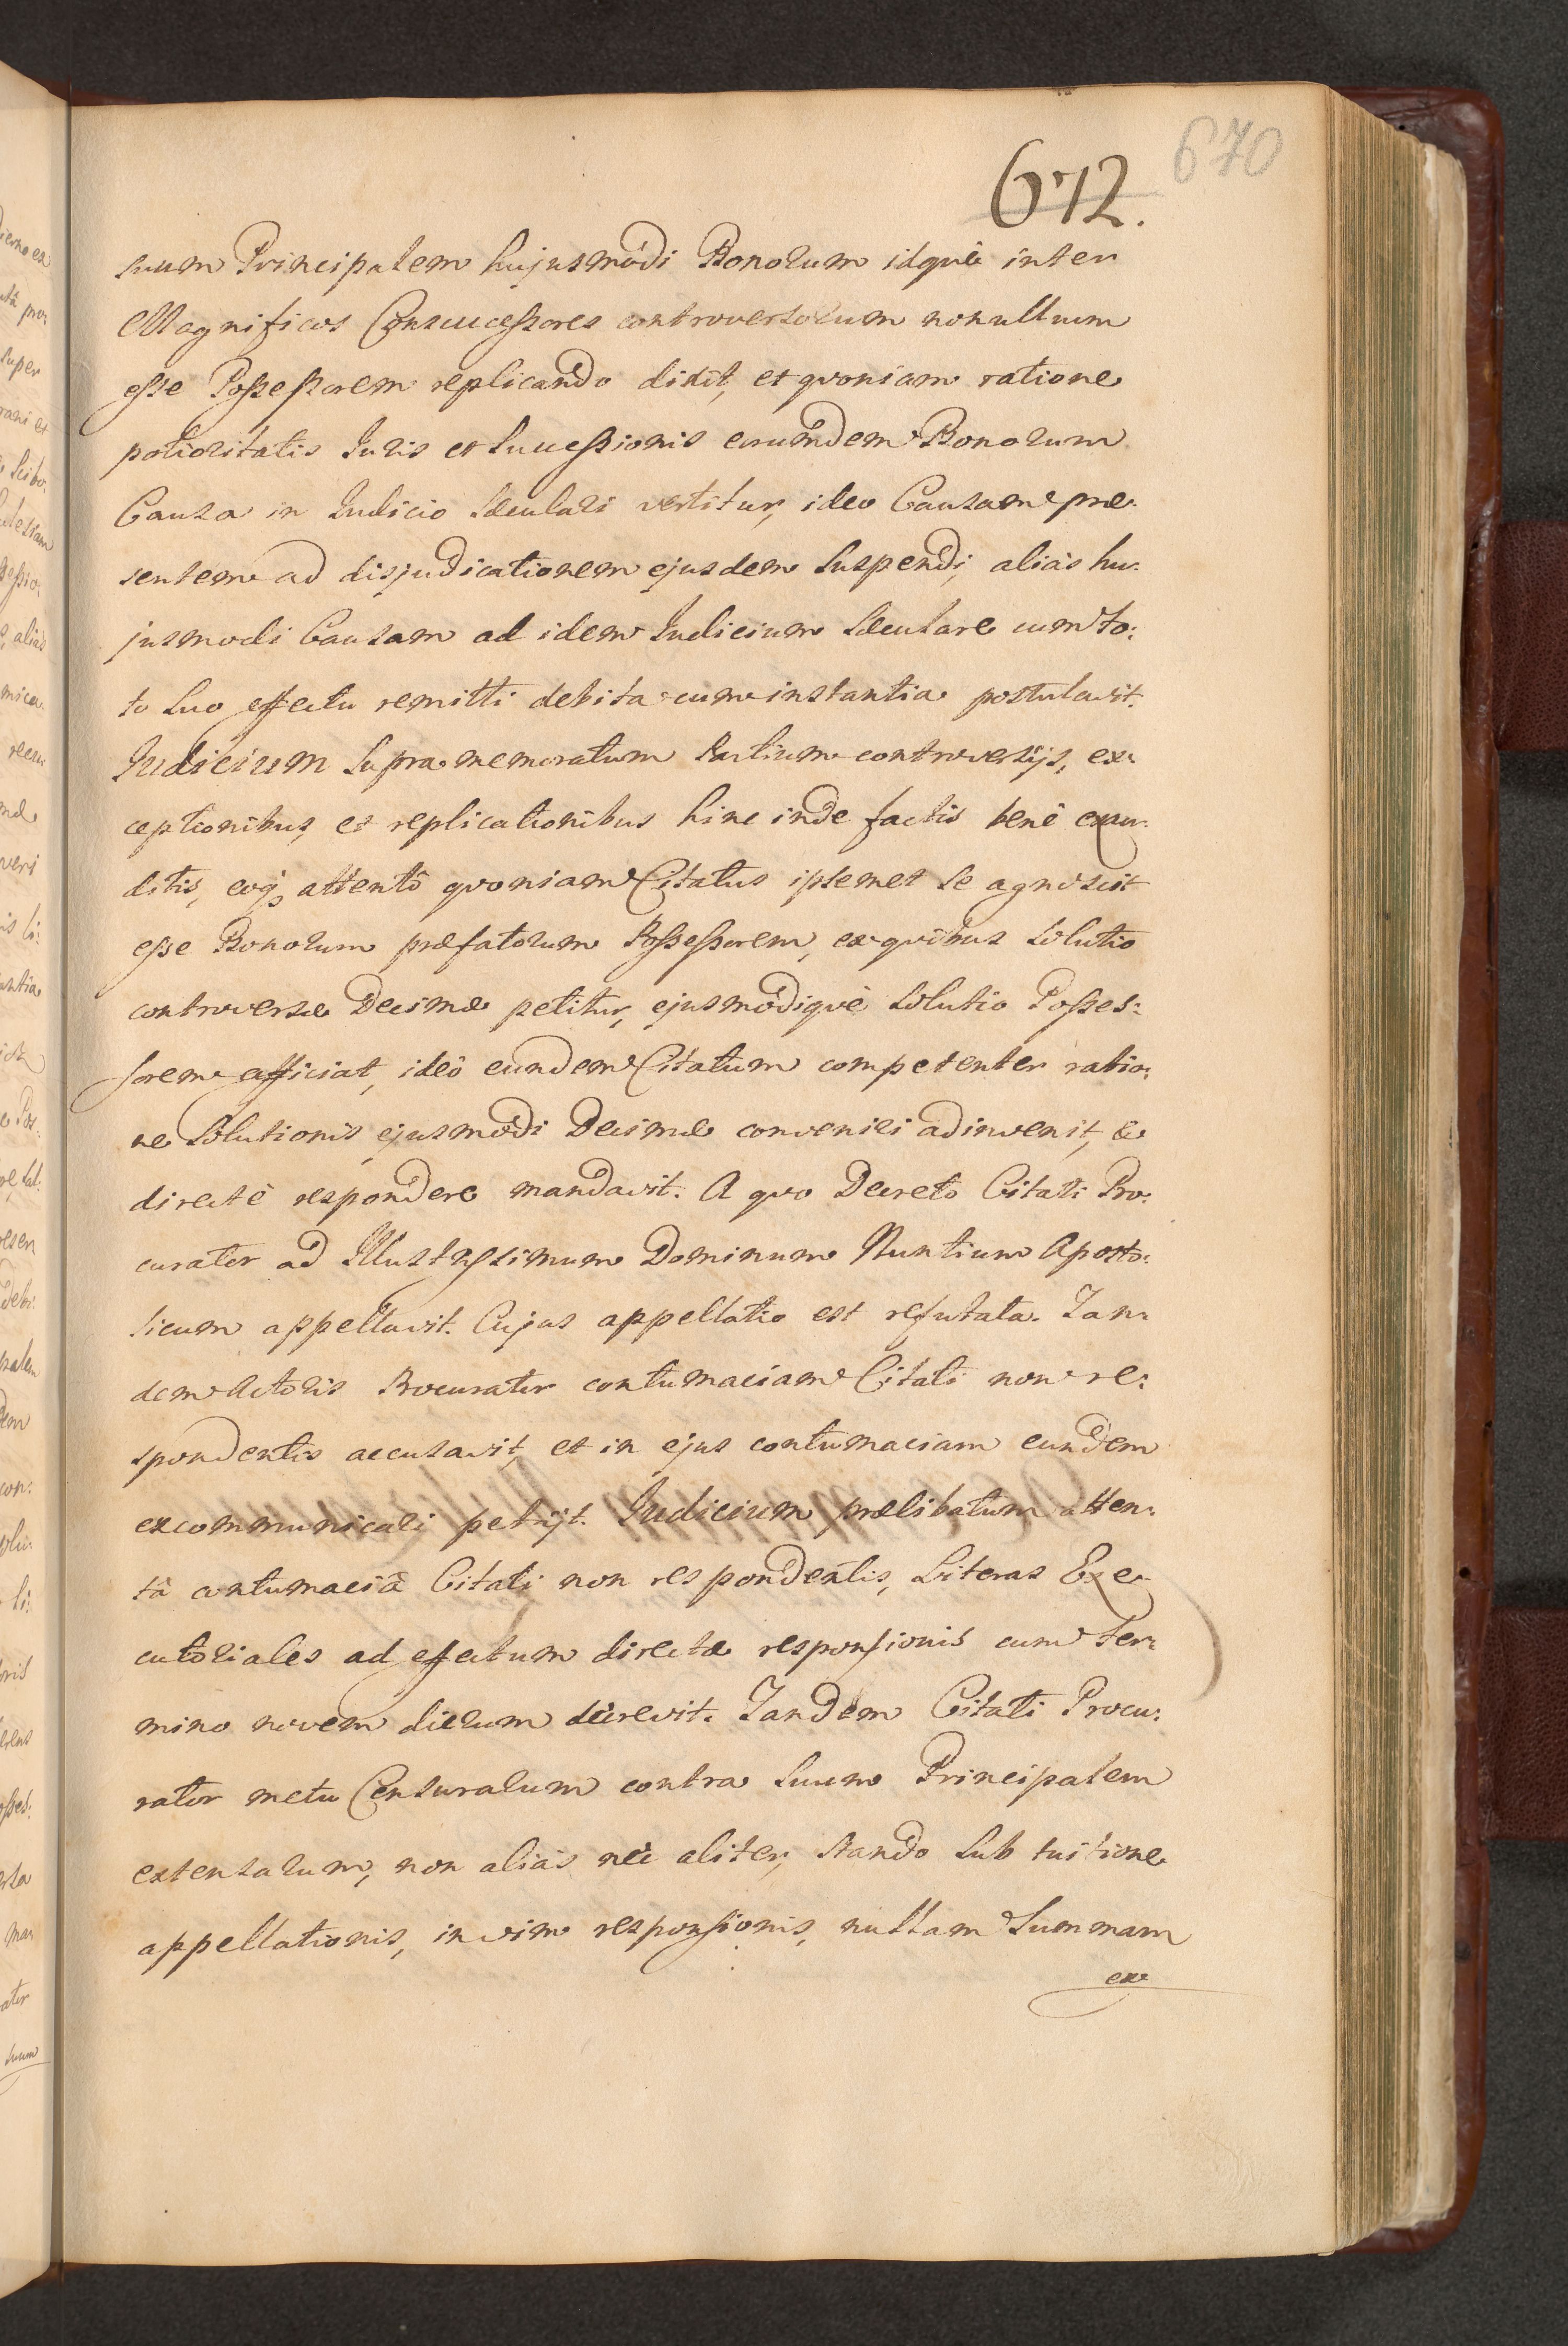 670
672.
suum Principalem hujusmodi Bonorum idquè inter
Magnificos Consuccessores controversorum nonullum
esse Possessorem replicando dixit, et qvoniam ratione
potioritatis Juris et Successionis eorumdem Bonorum
Causa in Judicio Sæculari vertitur, ideo Causam præ:
sentem ad disjudicationem ejusdem Suspendi, aliàs hu:
jusmodi Causam ad idem Judicium Sæculare cum to:
to Suo effectu remitti debita cum instantia postulavit.
Judicium Supra memoratum Partium controversijs, ex:
ceptionibus, et replicationibus hinc inde factis benè exau:
ditis, eoq; attentô qvoniam Citatus ipsemet Se agnoscit
esse Bonorum præfatorum Possessorem, ex qvibus Solutio
controversæ Decimæ petitur, ejusmodiqvè Solutio Posses:
sorem afficiat, ideò eundem Citatum competenter ratio:
ne Solutionis ejusmodi Decimæ conveniri adinvenit, &
directè respondere mandavit. A qvo Decreto Citati Pro:
curator ad Illustrissimum Dominum Nuntium Aposto:
licum appellavit. Cujus appellatio est refutata. Tan:
dem Actoris Procurator contumaciam Citati non re:
spondentis accusavit, et in ejus contumaciam eundem
excommunicari petijt. Judicium prælibatum atten:
tâ contumaciâ Citati non respondentis, Literas Exe:
cutoriales ad effectum directæ responsionis cum ter:
mino novem dierum decrevit. Tandem Citati Procu:
rator metu Censurarum contra Suum Principalem
extensarum, non aliàs nec aliter, Stando Sub tuitione
appellationis, in vim responsionis, nullam Summam
ex